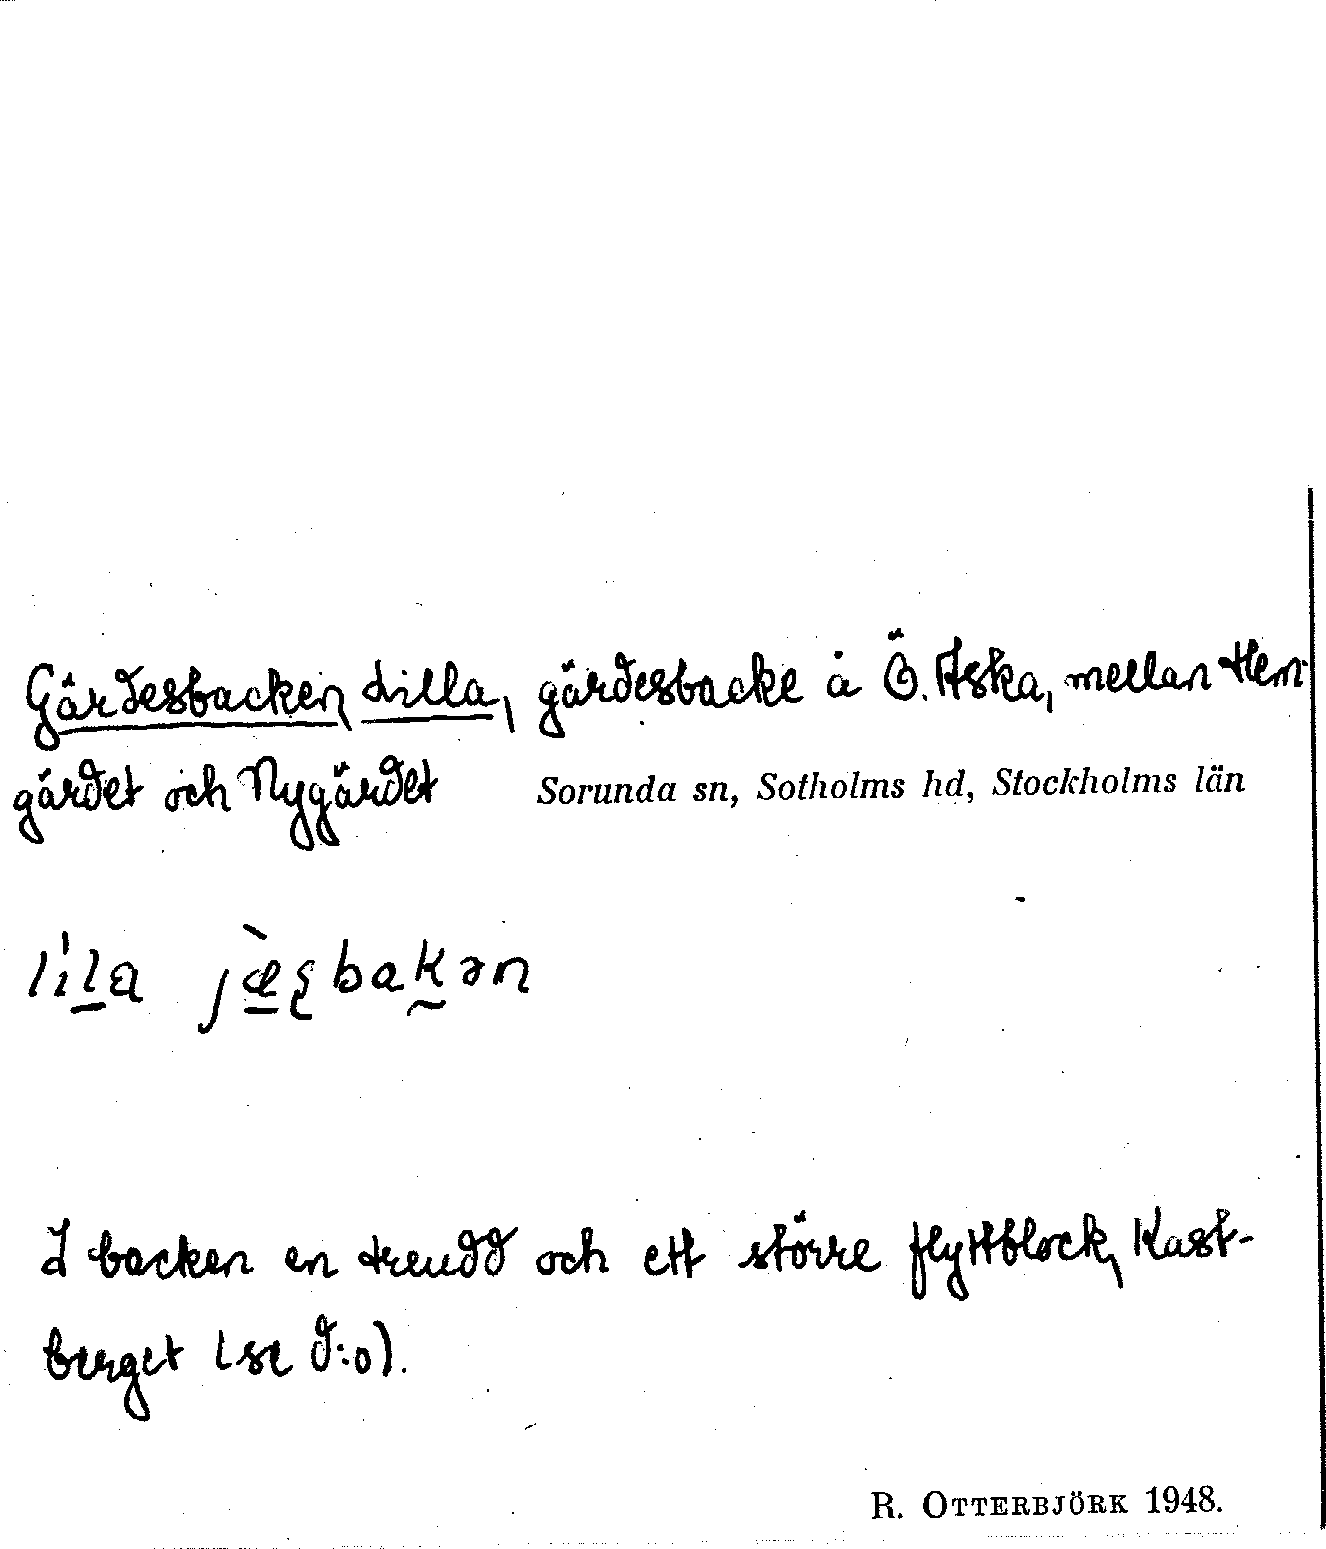 Gärdesbacken, Lilla, gärdesbacke å Ö. Aska, mellan Hem-
gärdet och Nygärdet Sorunda sn, Sotholms hd, Stockholms län
lila jæʂbakən
I backen en treudd och ett större flyttblock, Kast-
berget (se d:o).
R. OTTERBJÖRK 1948.